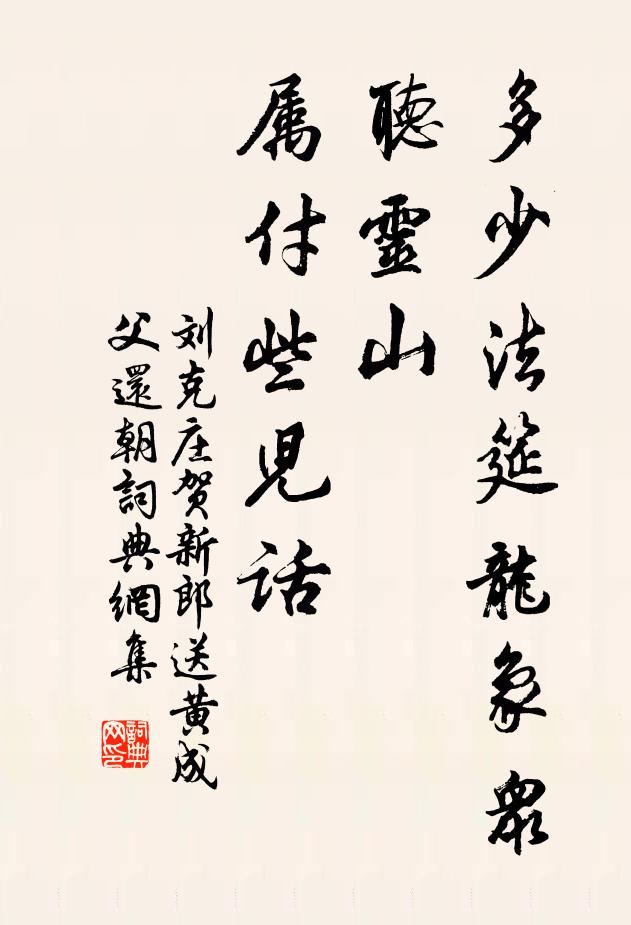 多少法筵龍象眾
聽靈山
属付些児話
刘克庄贺新郎送黄成
父還朝詞典網集
詞典网印